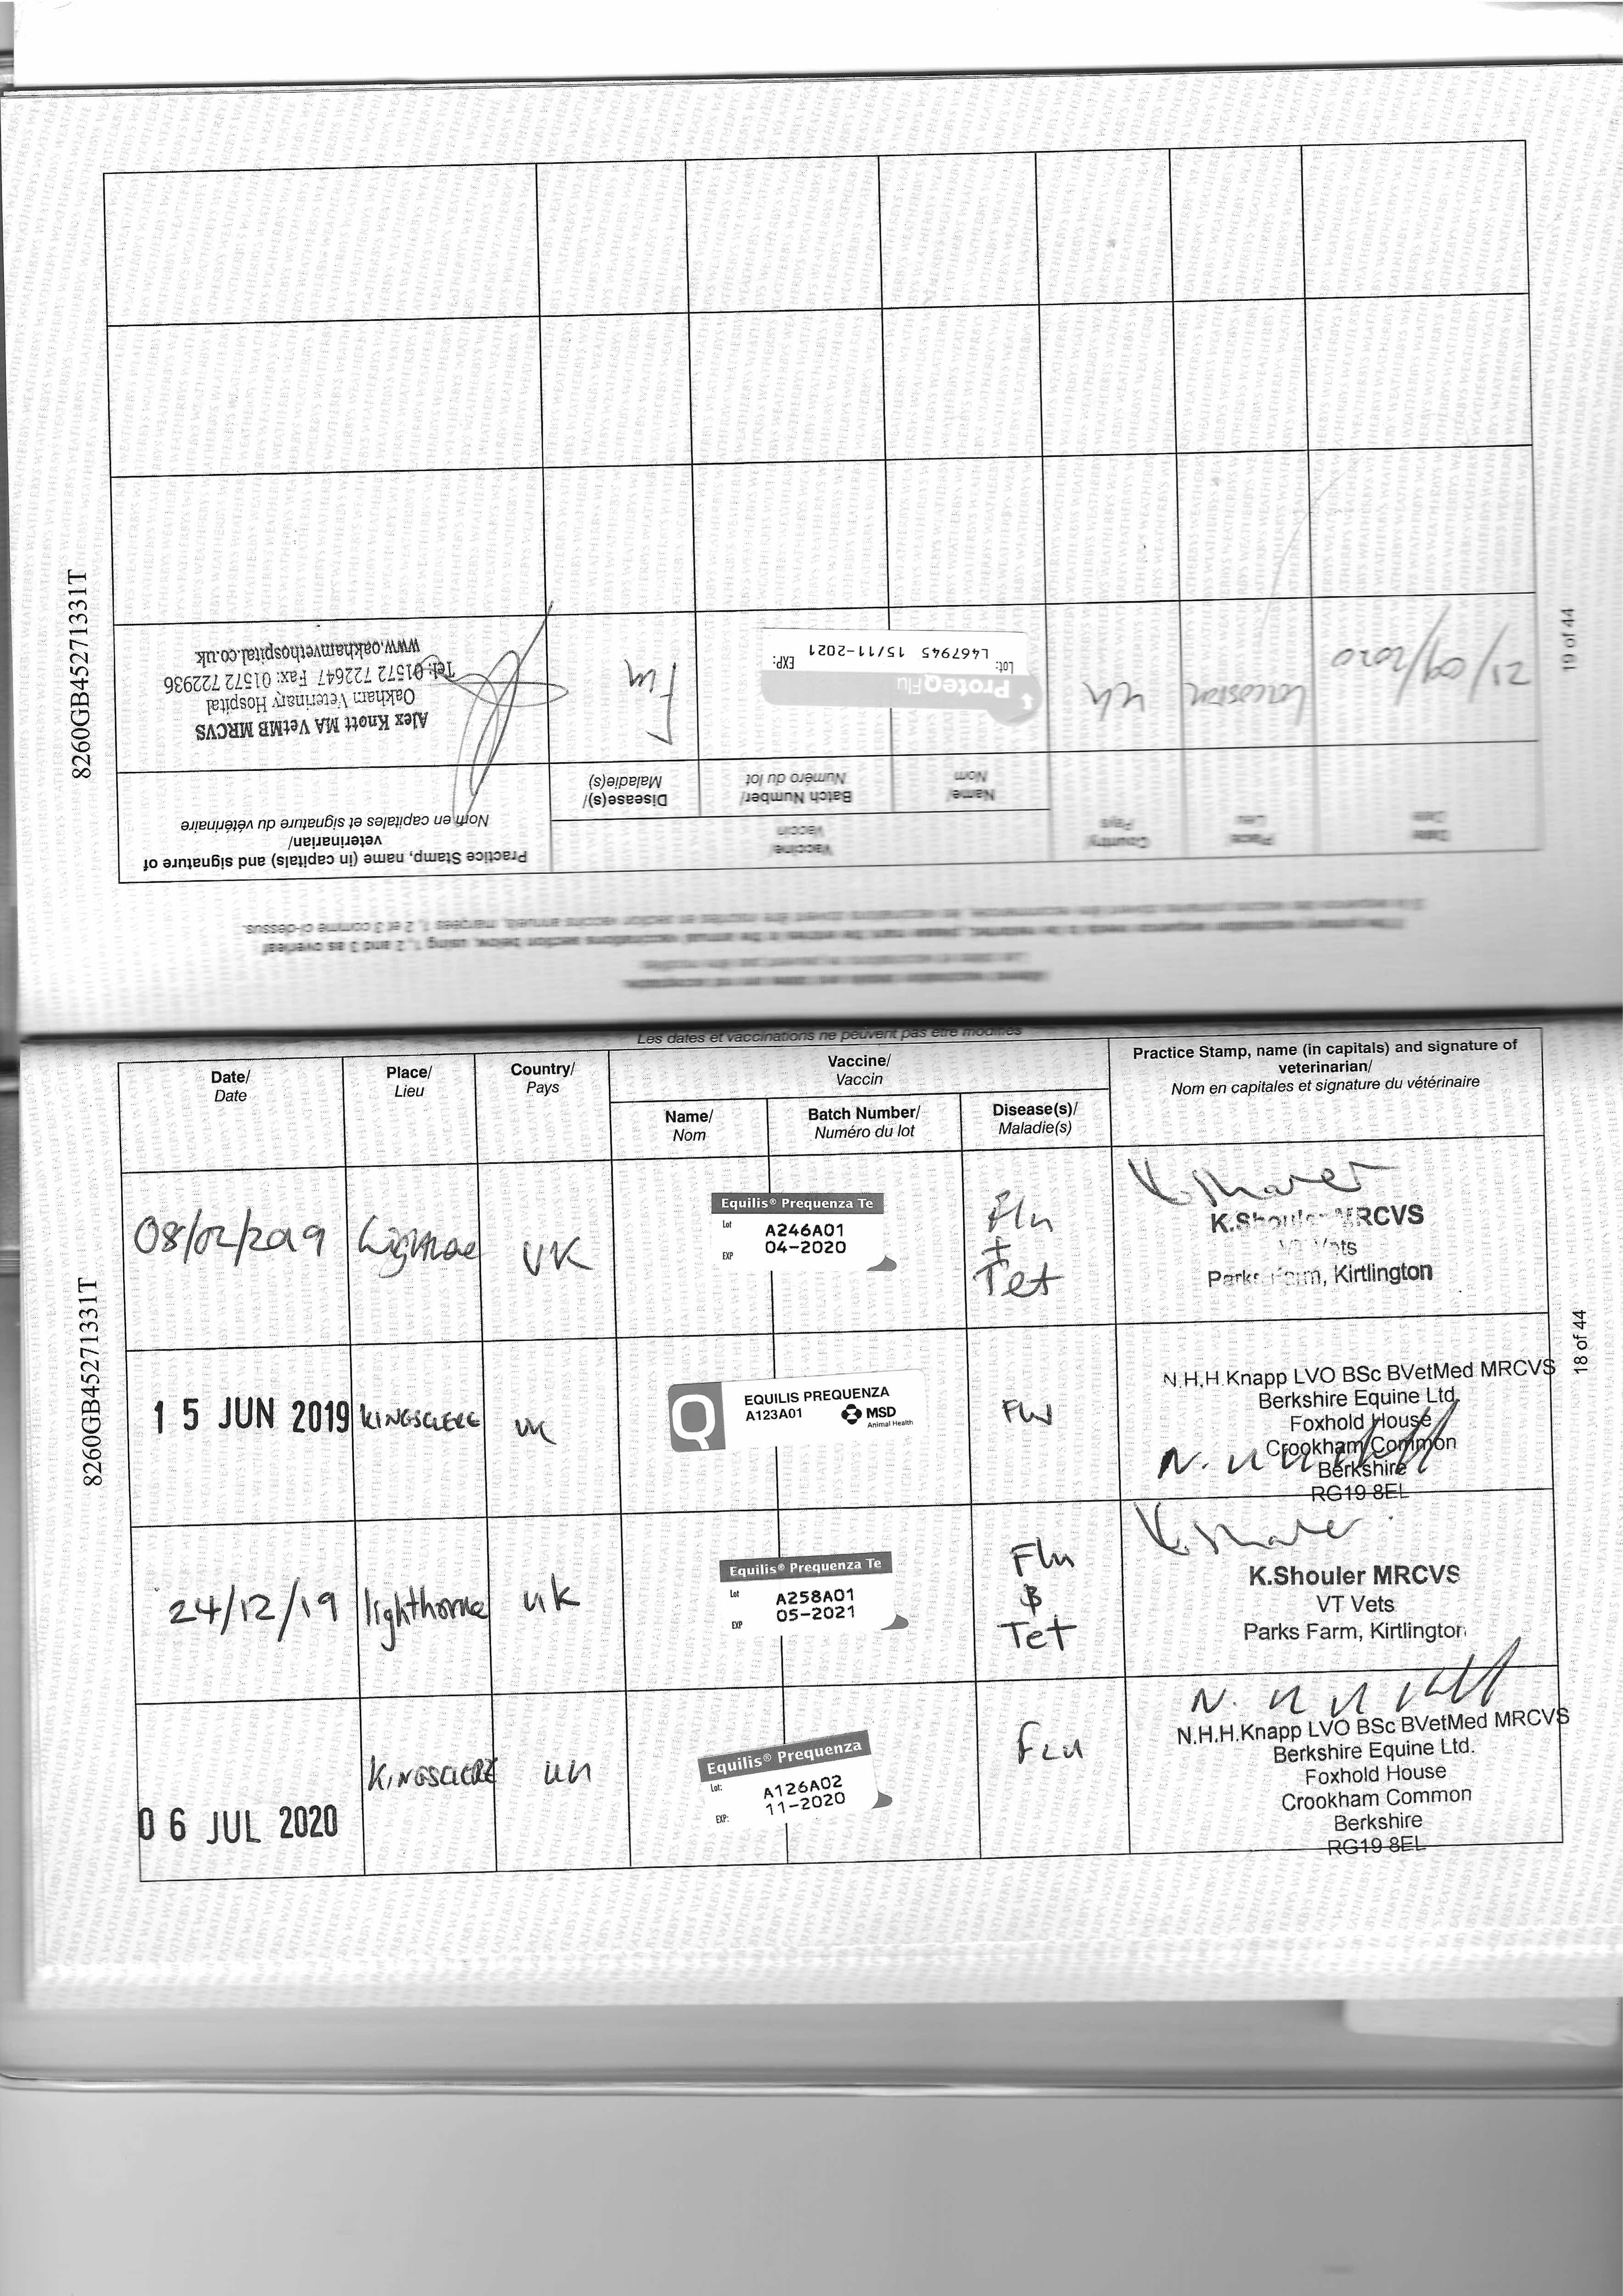 8260GB45271331T
19 of 44
Date/
Date
Place/
Lieu
Country/
Pays
Vaccine/
Vaccin
Name/
Nom
Batch Number/
Numéro du lot
Disease(s)/
Maladie(s)
Practice Stamp, name (in capitals) and signature of
veterinarian/
Nom en capitales et signature du vétérinaire
21/09/2020
UK
ProteqFlu
Lot: EXP:
L467945 15/11-2021
Flu
Alex Knott MA VetMB MRCVS
Oakham Veterinary Hospital
Tel: 01572 722647 Fax: 01572 722936
www.oakhamvethospital.co.uk
Les dates et vaccinations ne peuvent pas être modifiés
Date/
Date
Place/
Lieu
Country/
Pays
Vaccine/
Vaccin
Name/
Nom
Batch Number/
Numéro du lot
Disease(s)/
Maladie(s)
Practice Stamp, name (in capitals) and signature of
veterinarian/
Nom en capitales et signature du vétérinaire
08/02/2019
UK
Equilis® Prequenza Te
Lot A246A01
EXP 04-2020
Flu
+
Tet
K.Shouler MRCVS
VT Vets
Parks Farm, Kirtlington
15 JUN 2019
KINGSCLERE
UK
EQUILIS PREQUENZA
A123A01 MSD
Animal Health
Flu
N.H.H.Knapp LVO BSc BVetMed MRCVS
Berkshire Equine Ltd.
Foxhold House
Crookham Common
Berkshire
RG19 8EL
24/12/19
lighthorne
UK
Equilis® Prequenza Te
Lot A258A01
EXP 05-2021
Flu
&
Tet
K.Shouler MRCVS
VT Vets
Parks Farm, Kirtlington
06 JUL 2020
KINGSCLERE
UK
Equilis® Prequenza
Lot: A126A02
EXP: 11-2020
FLU
N.H.H.Knapp LVO BSc BVetMed MRCVS
Berkshire Equine Ltd.
Foxhold House
Crookham Common
Berkshire
RG19 8EL
8260GB45271331T
18 of 44